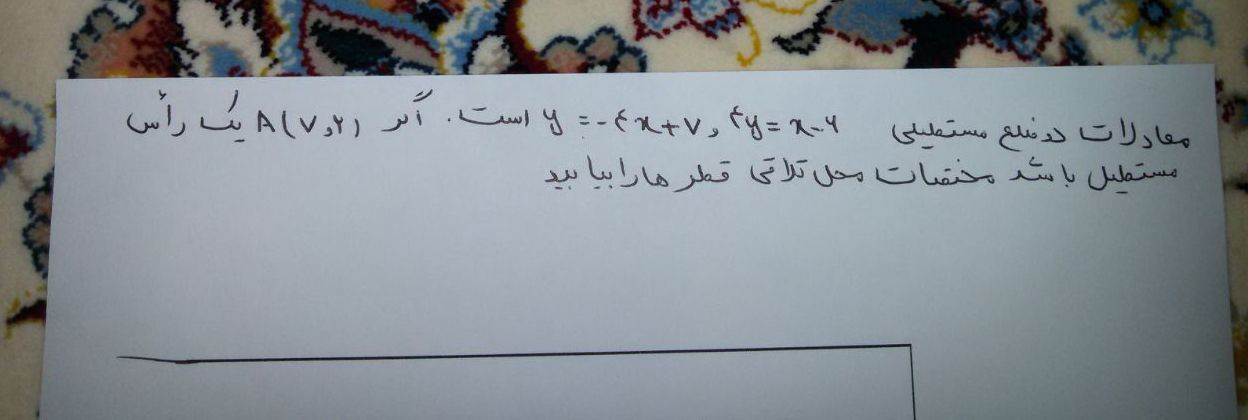 معادلات دو ضلع مستطیلی ۴y = x - ۶ و y = -۴x + ۷ است. اگر A(۷,۲) یک رأس
مستطیل باشد مختصات محل تلاقی قطر ها را بیابید